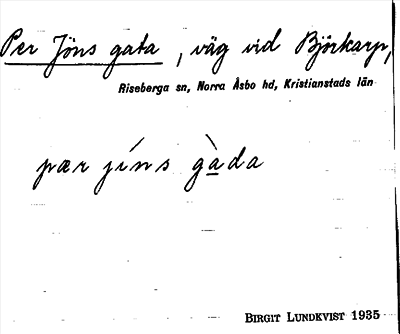 Per Jöns gata, väg vid Björkarp,
Riseberga sn, Norra Åsbo hd, Kristianstads län
pær jíns gàda
BIRGIT LUNDKVIST 1935